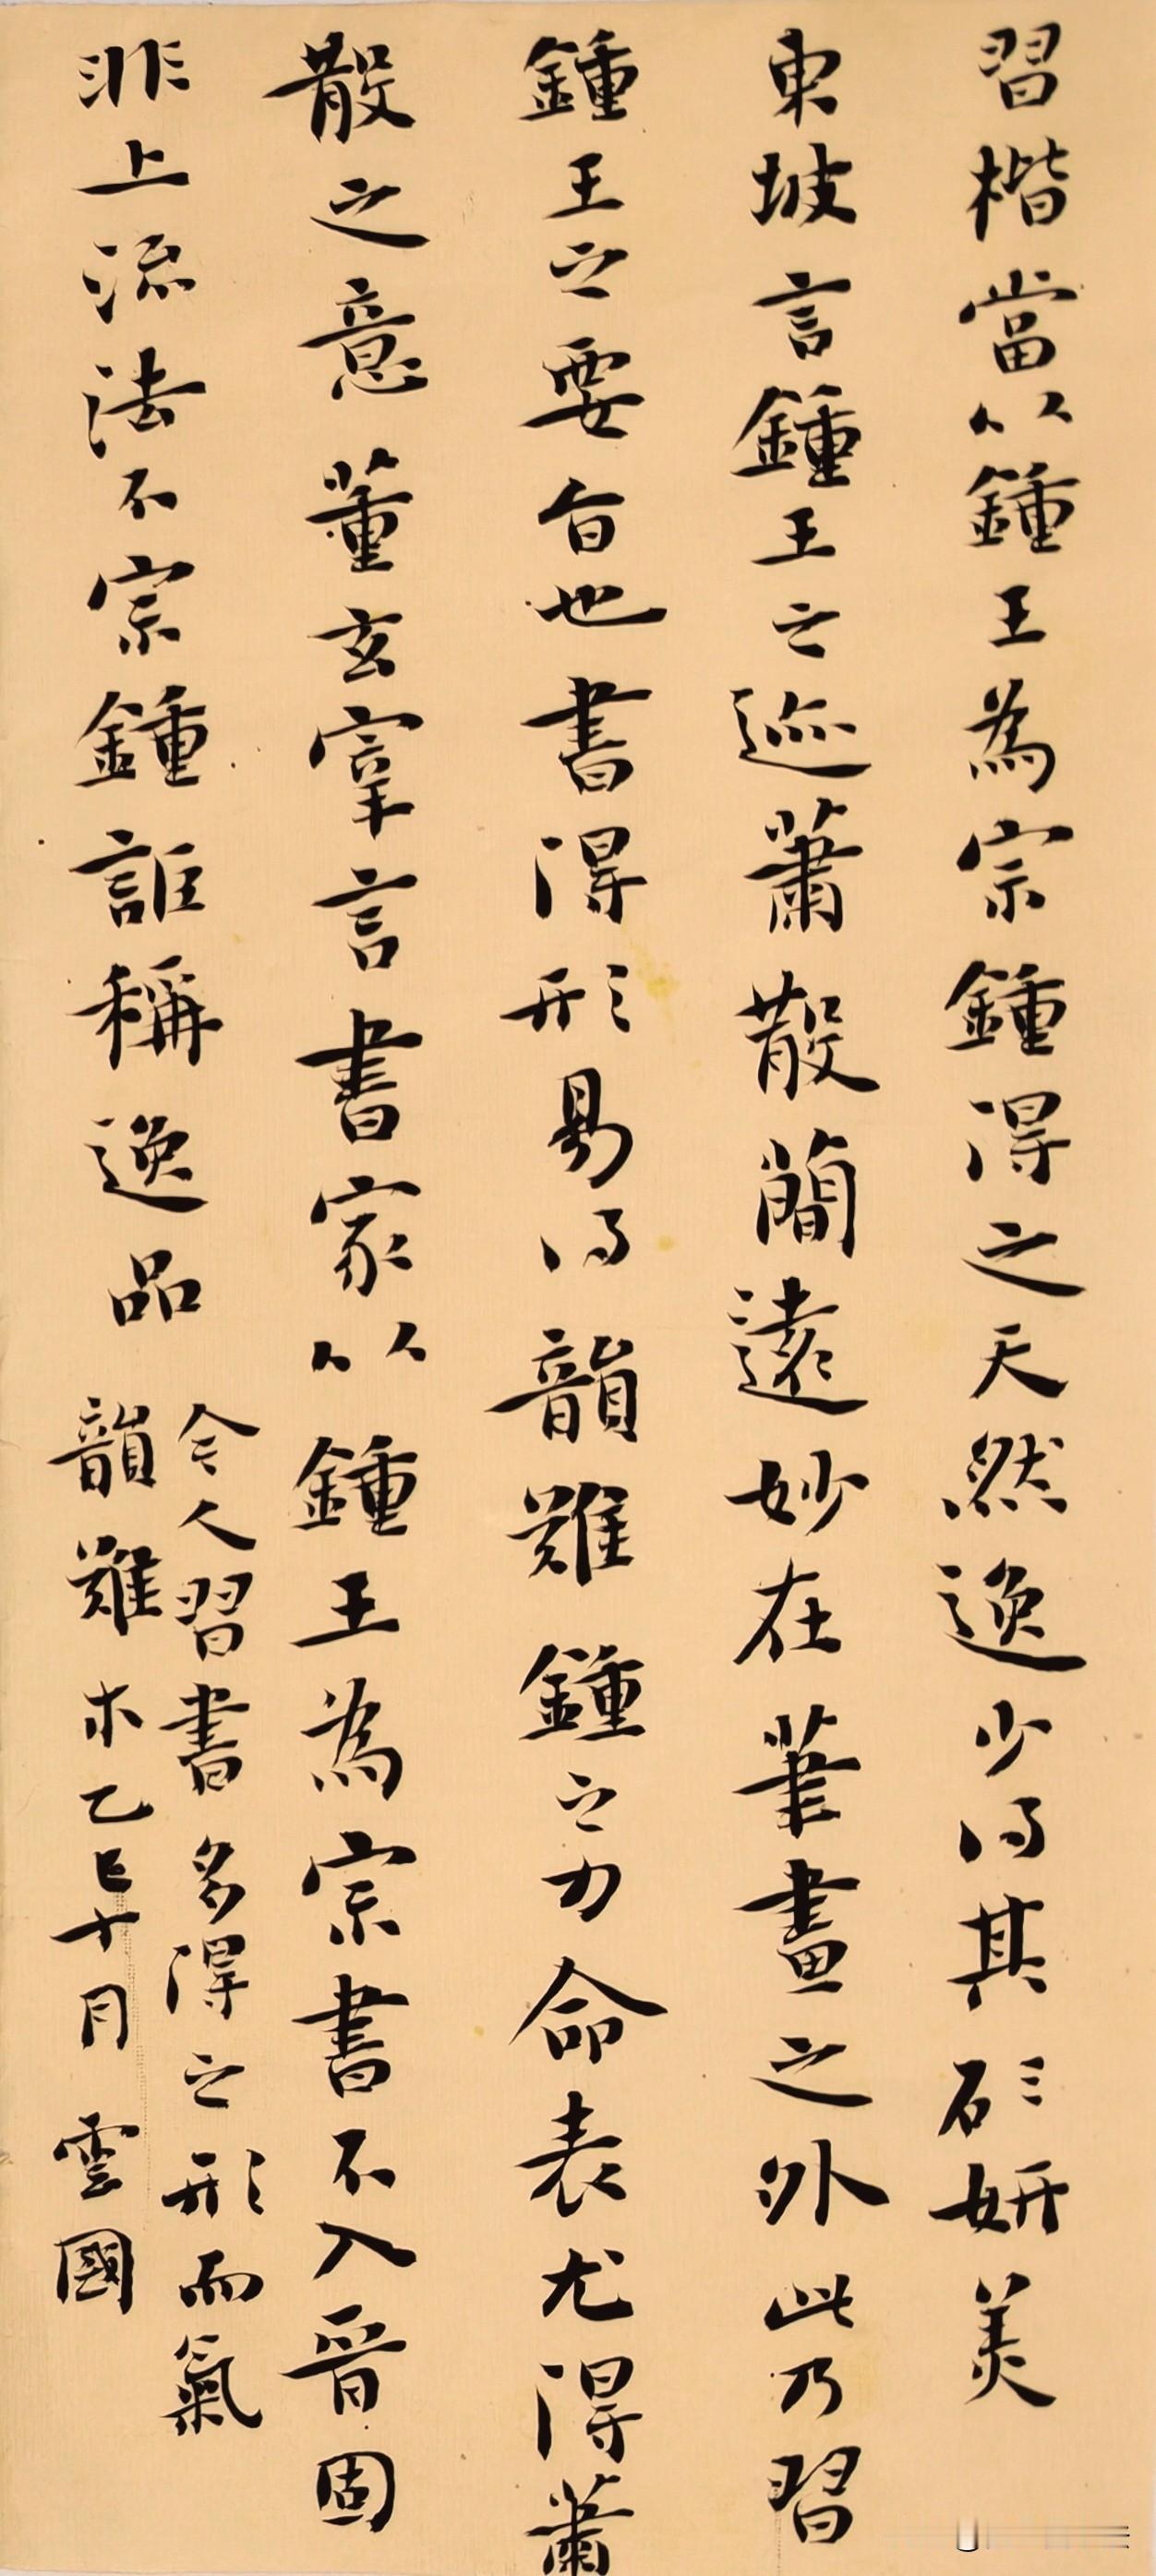 習楷當以鍾王為宗鍾得之天然逸少得其形妍美
東坡言鍾王之迹蕭散簡遠妙在筆畫之外此乃習
鍾王之要旨也書得形易得韻難鍾之力命表尤得蕭
散之意董玄宰言書家以鍾王為宗書不入晉固
非上流法不宗鍾誰稱逸品
今人習書多得之形而氣
韻難求乙巳十月雲國